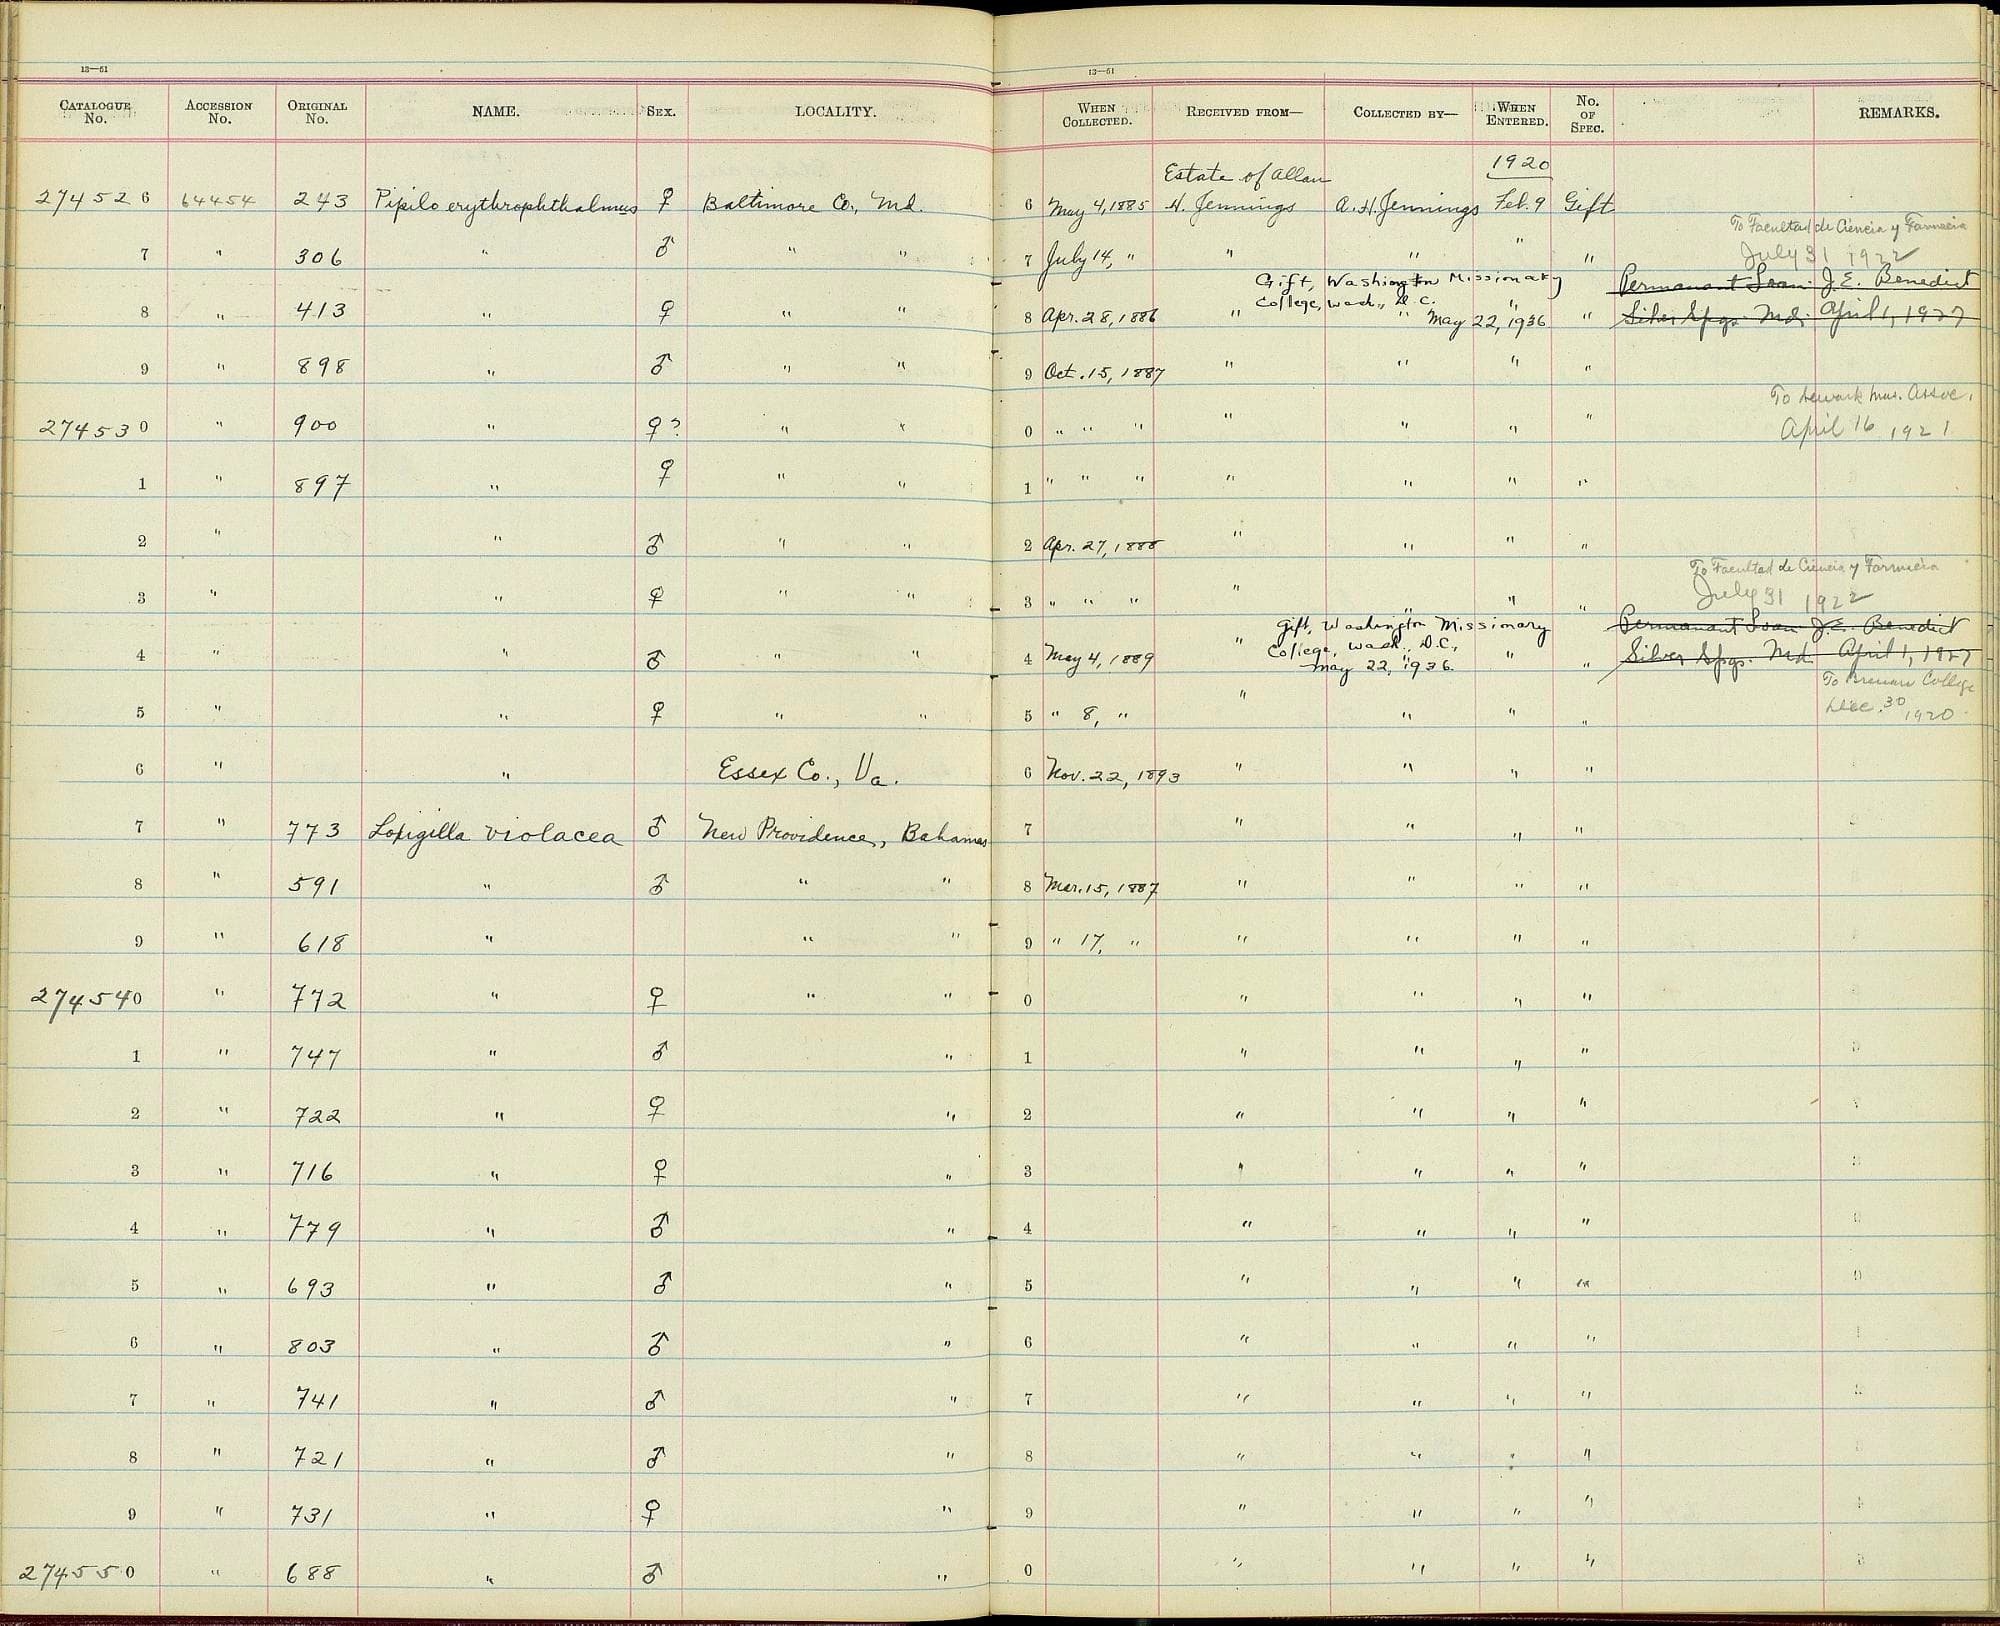 13—61
CATALOGUE No. ACCESSION No. ORIGINAL No. NAME. SEX. LOCALITY.
274526 64454 243 Pipilo erythrophthalmus ♀ Baltimore Co., Md.
7 " 306 " ♂ " "
8 " 413 " ♀ " "
9 " 898 " ♂ " "
274530 " 900 " ♀? " "
1 " 897 " ♀ " "
2 " " ♂ " "
3 " " ♀ " "
4 " " ♂ " "
5 " " ♀ " "
6 " " Essex Co., Va.
7 " 773 Loxigilla violacea ♂ New Providence, Bahamas
8 " 591 " ♂ " "
9 " 618 " " "
274540 " 772 " ♀ " "
1 " 747 " ♂ "
2 " 722 " ♀ "
3 " 716 " ♀ "
4 " 779 " ♂ "
5 " 693 " ♂ "
6 " 803 " ♂ "
7 " 741 " ♂ "
8 " 721 " ♂ "
9 " 731 " ♀ "
274550 " 688 " ♂ "
13—61
WHEN COLLECTED. RECEIVED FROM— COLLECTED BY— WHEN ENTERED. No. OF SPEC. REMARKS.
1920
Estate of Allan
6 May 4, 1885 H. Jennings A. H. Jennings Feb. 9 Gift
To Facultad de Ciencia y Farmacia
7 July 14, " " " " " July 31 1922
Gift, Washington Missionary Permanant Loan J. E. Benedict
College, Wash., D.C.
8 Apr. 28, 1886 " " May 22, 1936 " " Silver Spgs. Md. April 1, 1927
9 Oct. 15, 1887 " " " "
To Newark Mus. Assoc.
0 " " " " " " " April 16 1921
1 " " " " " " "
2 Apr. 27, 1888 " " " "
To Facultad de Ciencia y Farmacia
3 " " " " " " " July 31 1922
Gift, Washington Missionary Permanant Loan J. E. Benedict
College, Wash., D.C.,
4 May 4, 1889 " " " " Silver Spgs. Md. April 1, 1927
May 22, 1936.
To Brenau College
5 " 8, " " " " " Dec. 30 1920
6 Nov. 22, 1893 " " " "
7 " " " "
8 Mar. 15, 1887 " " " "
9 " 17, " " " " "
0 " " " "
1 " " " "
2 " " " "
3 " " " "
4 " " " "
5 " " " "
6 " " " "
7 " " " "
8 " " " "
9 " " " "
0 " " " "